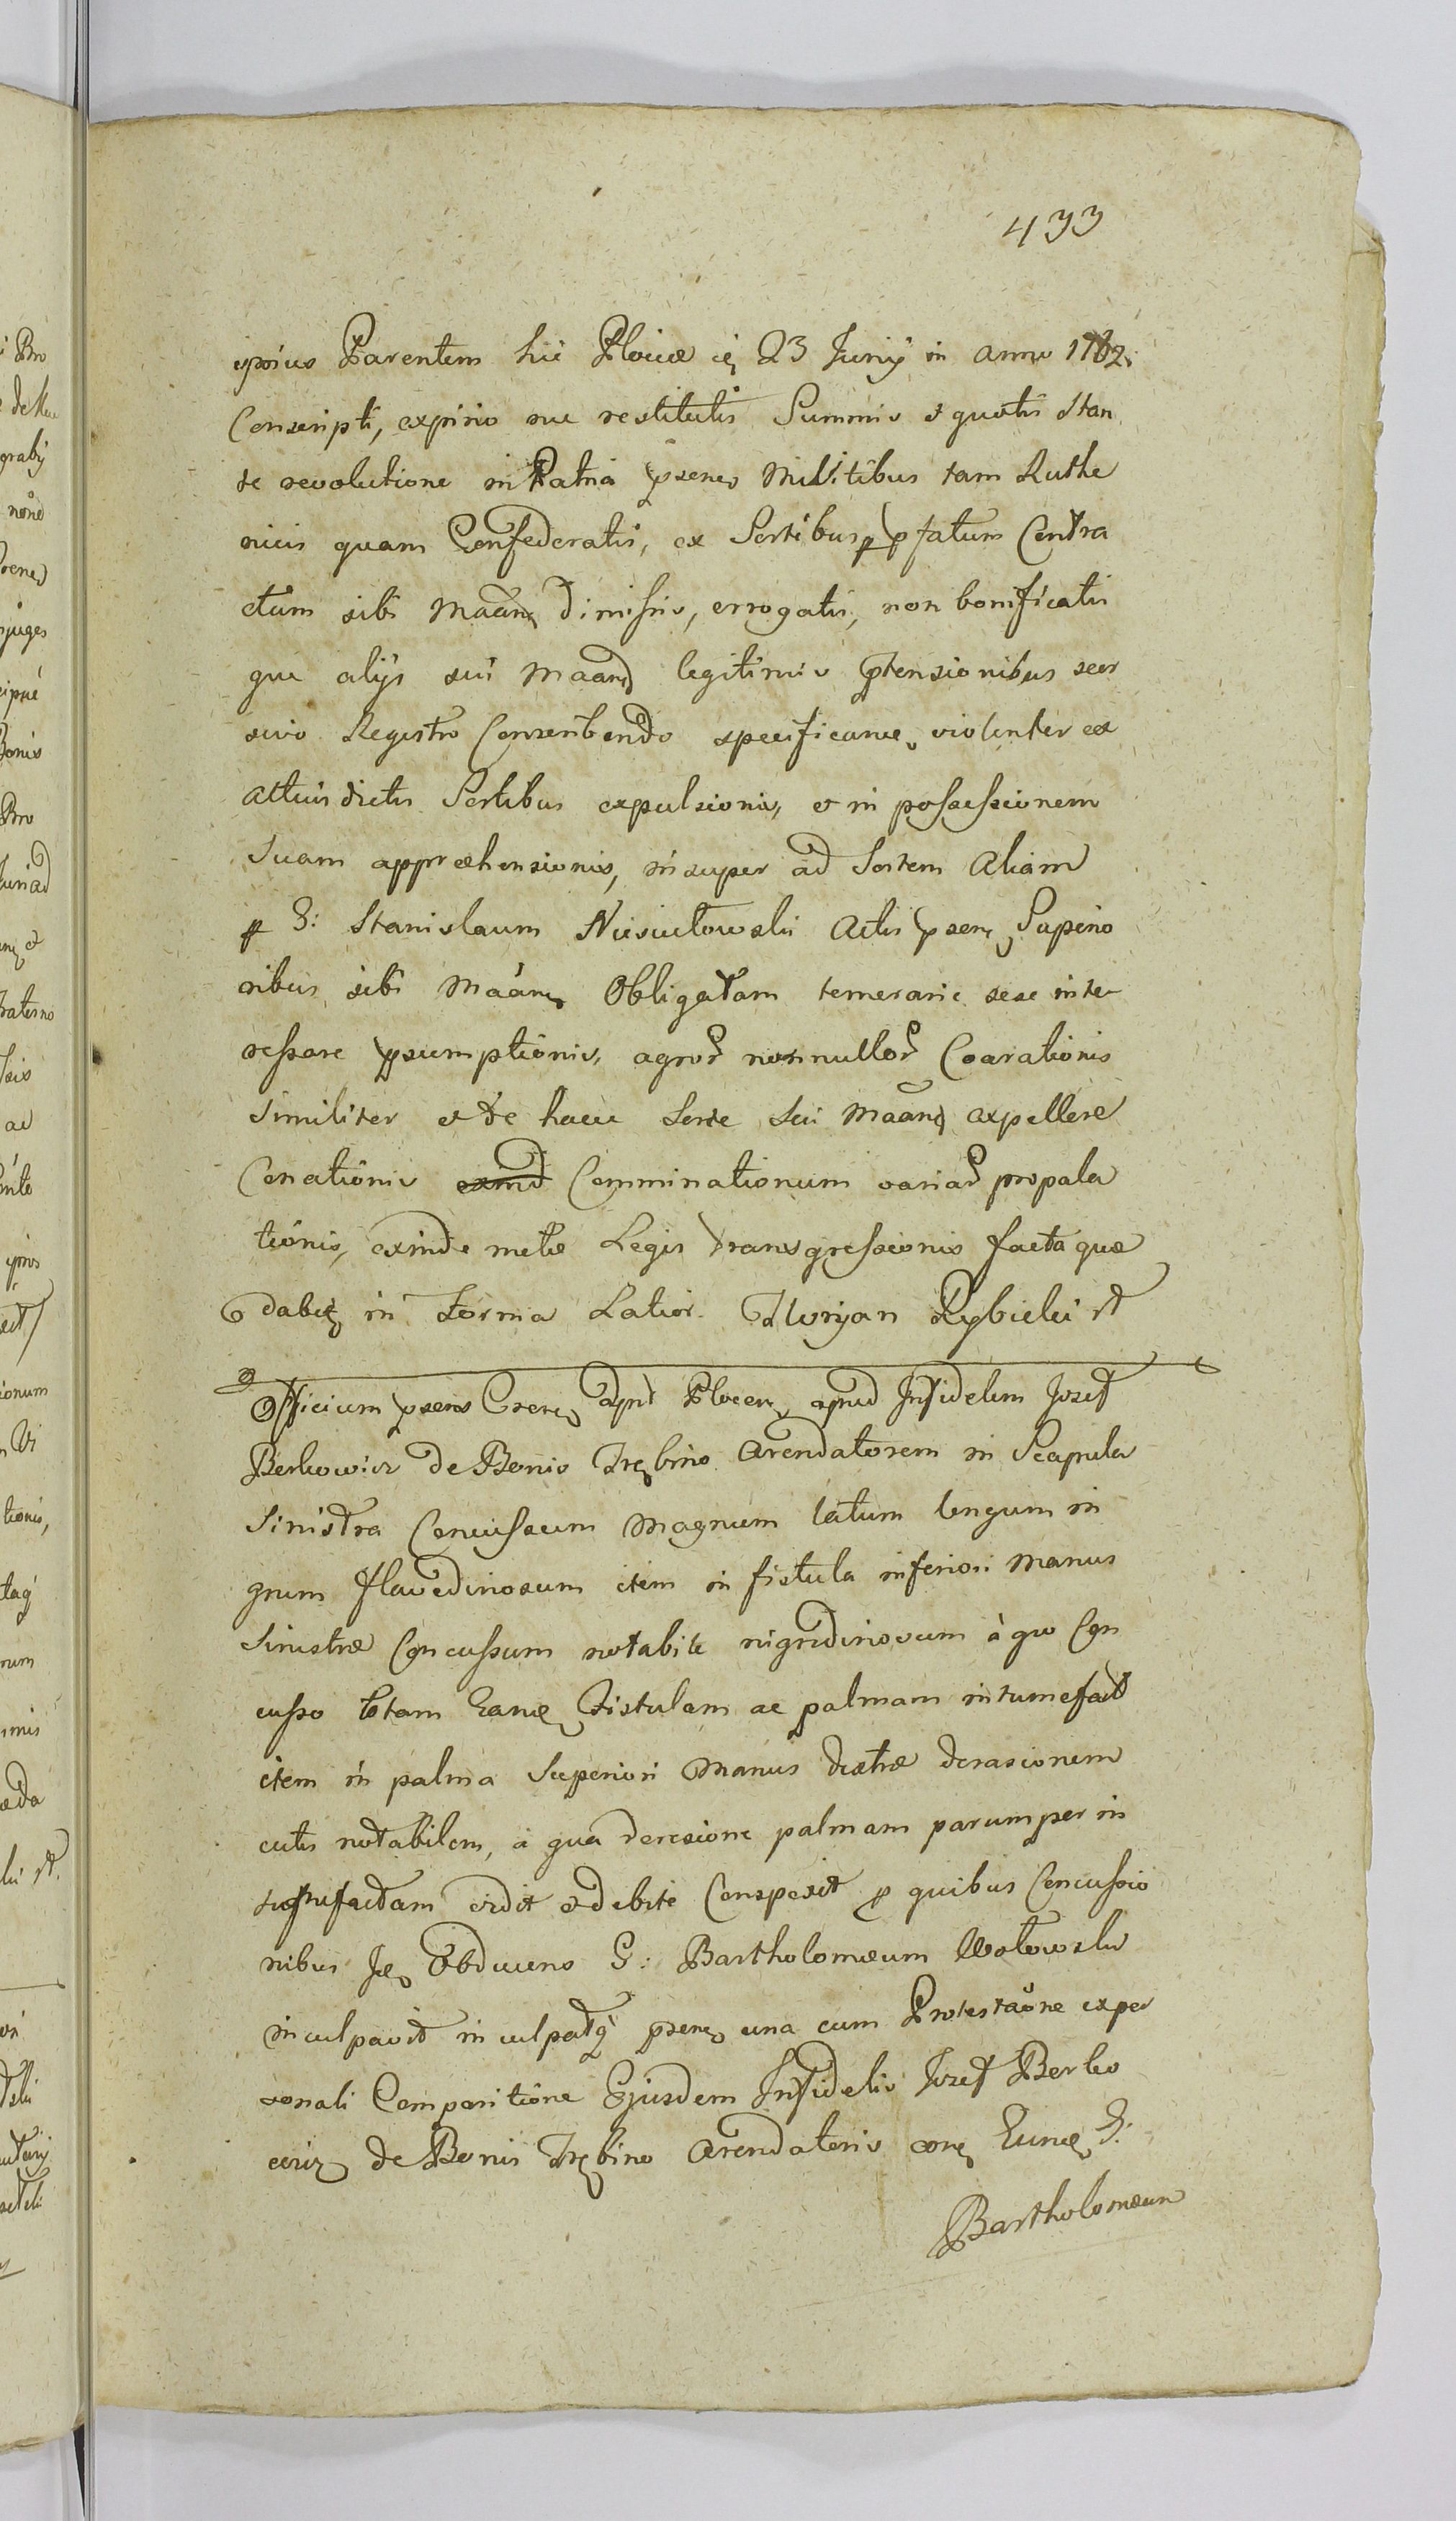 433
ipsius Parentem hic Plociæ 23 Junij in anno 1762.
Conscripti, expirio nec restitutis Summis et quotis Stan
te revolutione in Patria psenes Militibus tam Ruthe
nicis quam Confederatis, ex Sortibus p pfatum Contra
ctum sibi Maans dimissis, errogatis, non bonificatis
que alijs sui Maand legitimis ptensionibus seor
sivo Registro Conscribendo specificance violenter ex
attuis dictis Sortibus expulsionis, et in possessionem
Suam appræhensionis, insuper ad Sortem Aliam
p G: Stanislaum Nieciułowski Actis psen Superio
ribus sibi Maans Obligatam temerarie sese inte
ressare psumptionis, agror nonnullor Coarationis
Similiter et de hacce Sorte sui Maans expellere
Conationis Comminationum variar propala
tionis, exinde metæ Legis transgressionis facta quæ
dabit in Forma Latior. Floryan Rybicki
Officium psens Crens Plocen apud Infidelem Josef
Berkowicz de Bonis Trębino Arendatorem in Scapula
Sinistra Concussum Magnum latum longum in
grum flavedinosum item in fistula inferiori Manus
Sinistræ Concussum notabile nigredinosum à quo Con
cusso totam Eance Fistulam ac palmam intumefact
item in palma Superiori Manus dextræ derasionem
cutis notabilem, à qua deresione palmam parumper in
tumefactam vidit et debite Conspexit p quibus Concussio
nibus Obducens G: Bartholomæum Wołowski
inculpavit inculpatq psens una cum Protestaone exper
sonali Comparitione Ejusdem Infidelis Josef Berko
wicz de Bonis Trębino Arendatoris Eunce G:
Bartholomæum